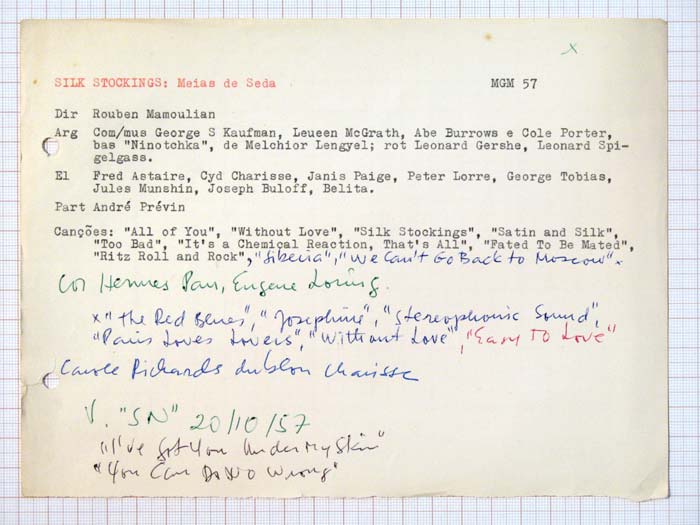 x
SILK STOCKINGS: Meias de Seda MGM 57
Dir Rouben Mamoulian
Arg Com/mus George S Kaufman, Leueen McGrath, Abe Burrows e Cole Porter,
bas "Ninotchka", de Melchior Lengyel; rot Leonard Gershe, Leonard Spi-
gelgass.
El Fred Astaire, Cyd Charisse, Janis Paige, Peter Lorre, George Tobias,
Jules Munshin, Joseph Buloff, Belita.
Part André Prévin
Canções: "All of You", "Without Love", "Silk Stockings", "Satin and Silk",
"Too Bad", "It's a Chemical Reaction, That's All", "Fated To Be Mated",
"Ritz Roll and Rock", "Siberia", "We Can't Go Back to Moscow" x
Cor Hermes Pan, Eugene Loring.
x "The Red Blues", "Josephine", "Stereophonic Sound",
"Paris Loves Lovers", "Without Love", "Easy To Love"
Carole Richards dublou Charisse
V. "SN" 20/10/57
"I've Got You Under My Skin"
"You Can Do No Wrong"